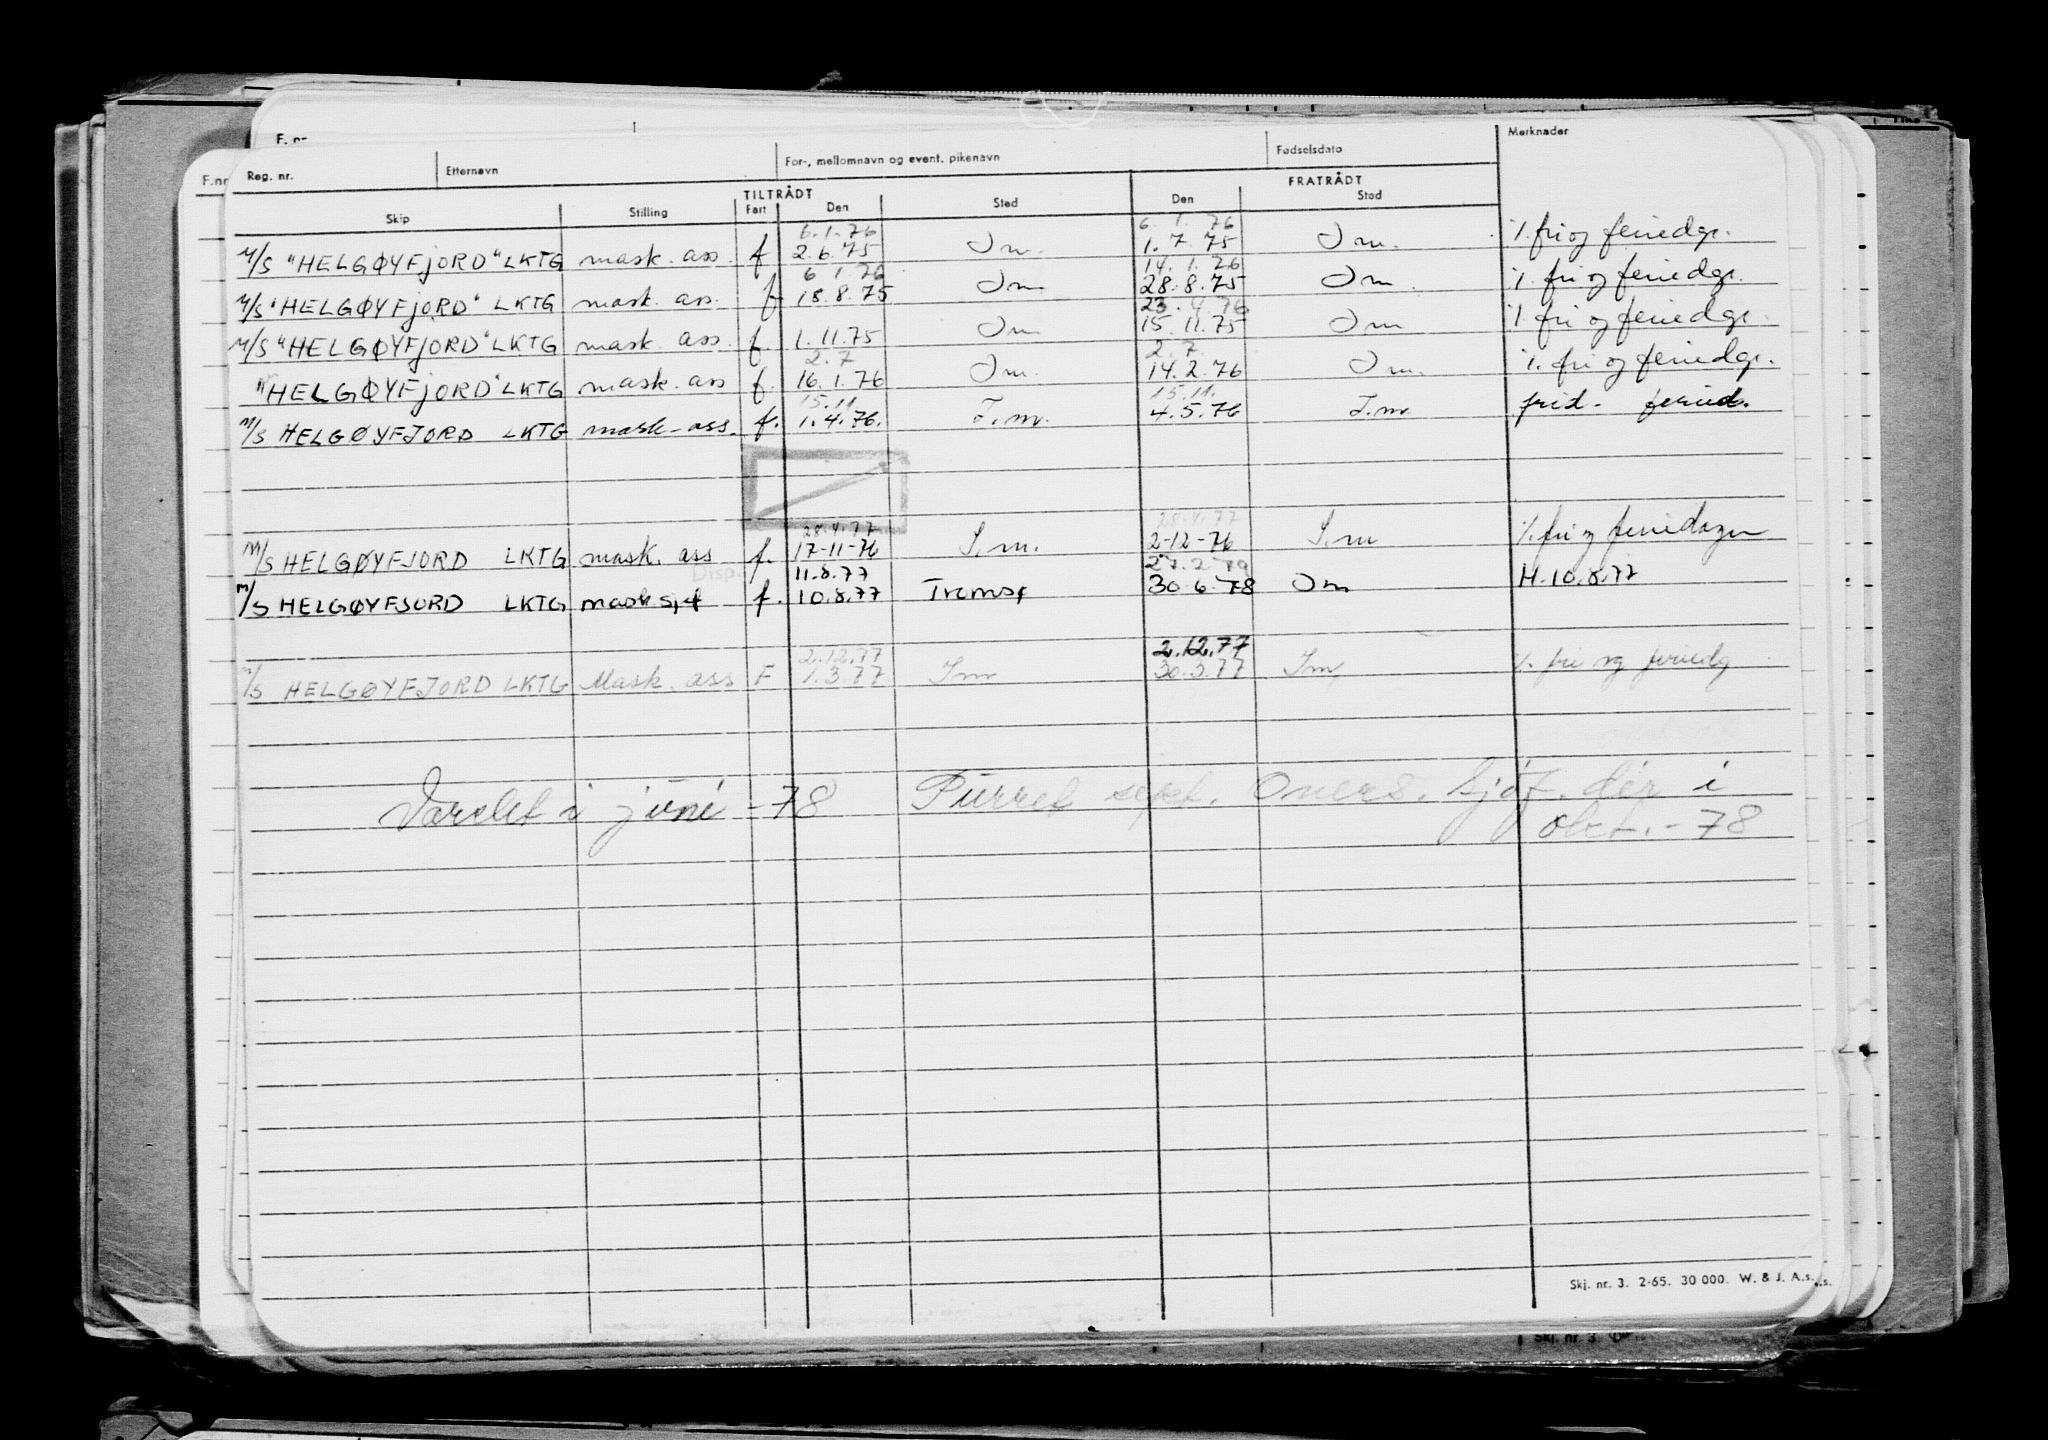 F. nr
F.nr
Reg. nr. Etternavn For-, mellomnavn og event. pikenavn Fødselsdato Merknader
TILTRÅDT FRATRÅDT
Skip Stilling Fart Den Sted Den Sted
6.1.76 6.1.76
M/S "HELGØYFJORD" LKTG mask. ass. f 2.6.75 Im. 1.7.75 Im. % fri og feriedgr.
6 1.76 14.1.76
M/S "HELGØYFJORD" LKTG mask. ass. f. 18.8.75 Im 28.8.75 Im. % fri og feriedgr.
23.4.76
M/S "HELGØYFJORD" LKTG mask. ass. f. 1.11.75 Im 15.11.75 Im % fri og feriedgr.
2.7 2.7.
"HELGØYFJORD" LKTG mask. ass f. 16.1.76 Im. 14.2.76 Im. %. fri og feriedgr.
15.11 15.11.
M/S HELGØYFJORD LKTG mask-ass. f. 1.4.76. I.m. 4.5.76 I.m. frid. feried.
28.4.77 28.4.77
M/S HELGØYFJORD LKTG mask. ass f. 17-11-76 I.m. 2-12-76 I.m % fri og feriedager
Disp. 11.8.77 27.2.79
M/S HELGØYFJORD LKTG mask sjef f. 10.8.77 Tromsø 30.6.78 Im H-10.8.77
2.12.77 2.12.77
M/S HELGØYFJORD LKTG Mask. ass F 1.3.77 Im 30.3.77 Im % fri og feriedg
Varslet i juni -78 Purret sept. Overs. Sjøf. dir i
okt. -78
Skj. nr. 3. 2-65. 30 000. W. & J. A.s.
Skj. nr. 3